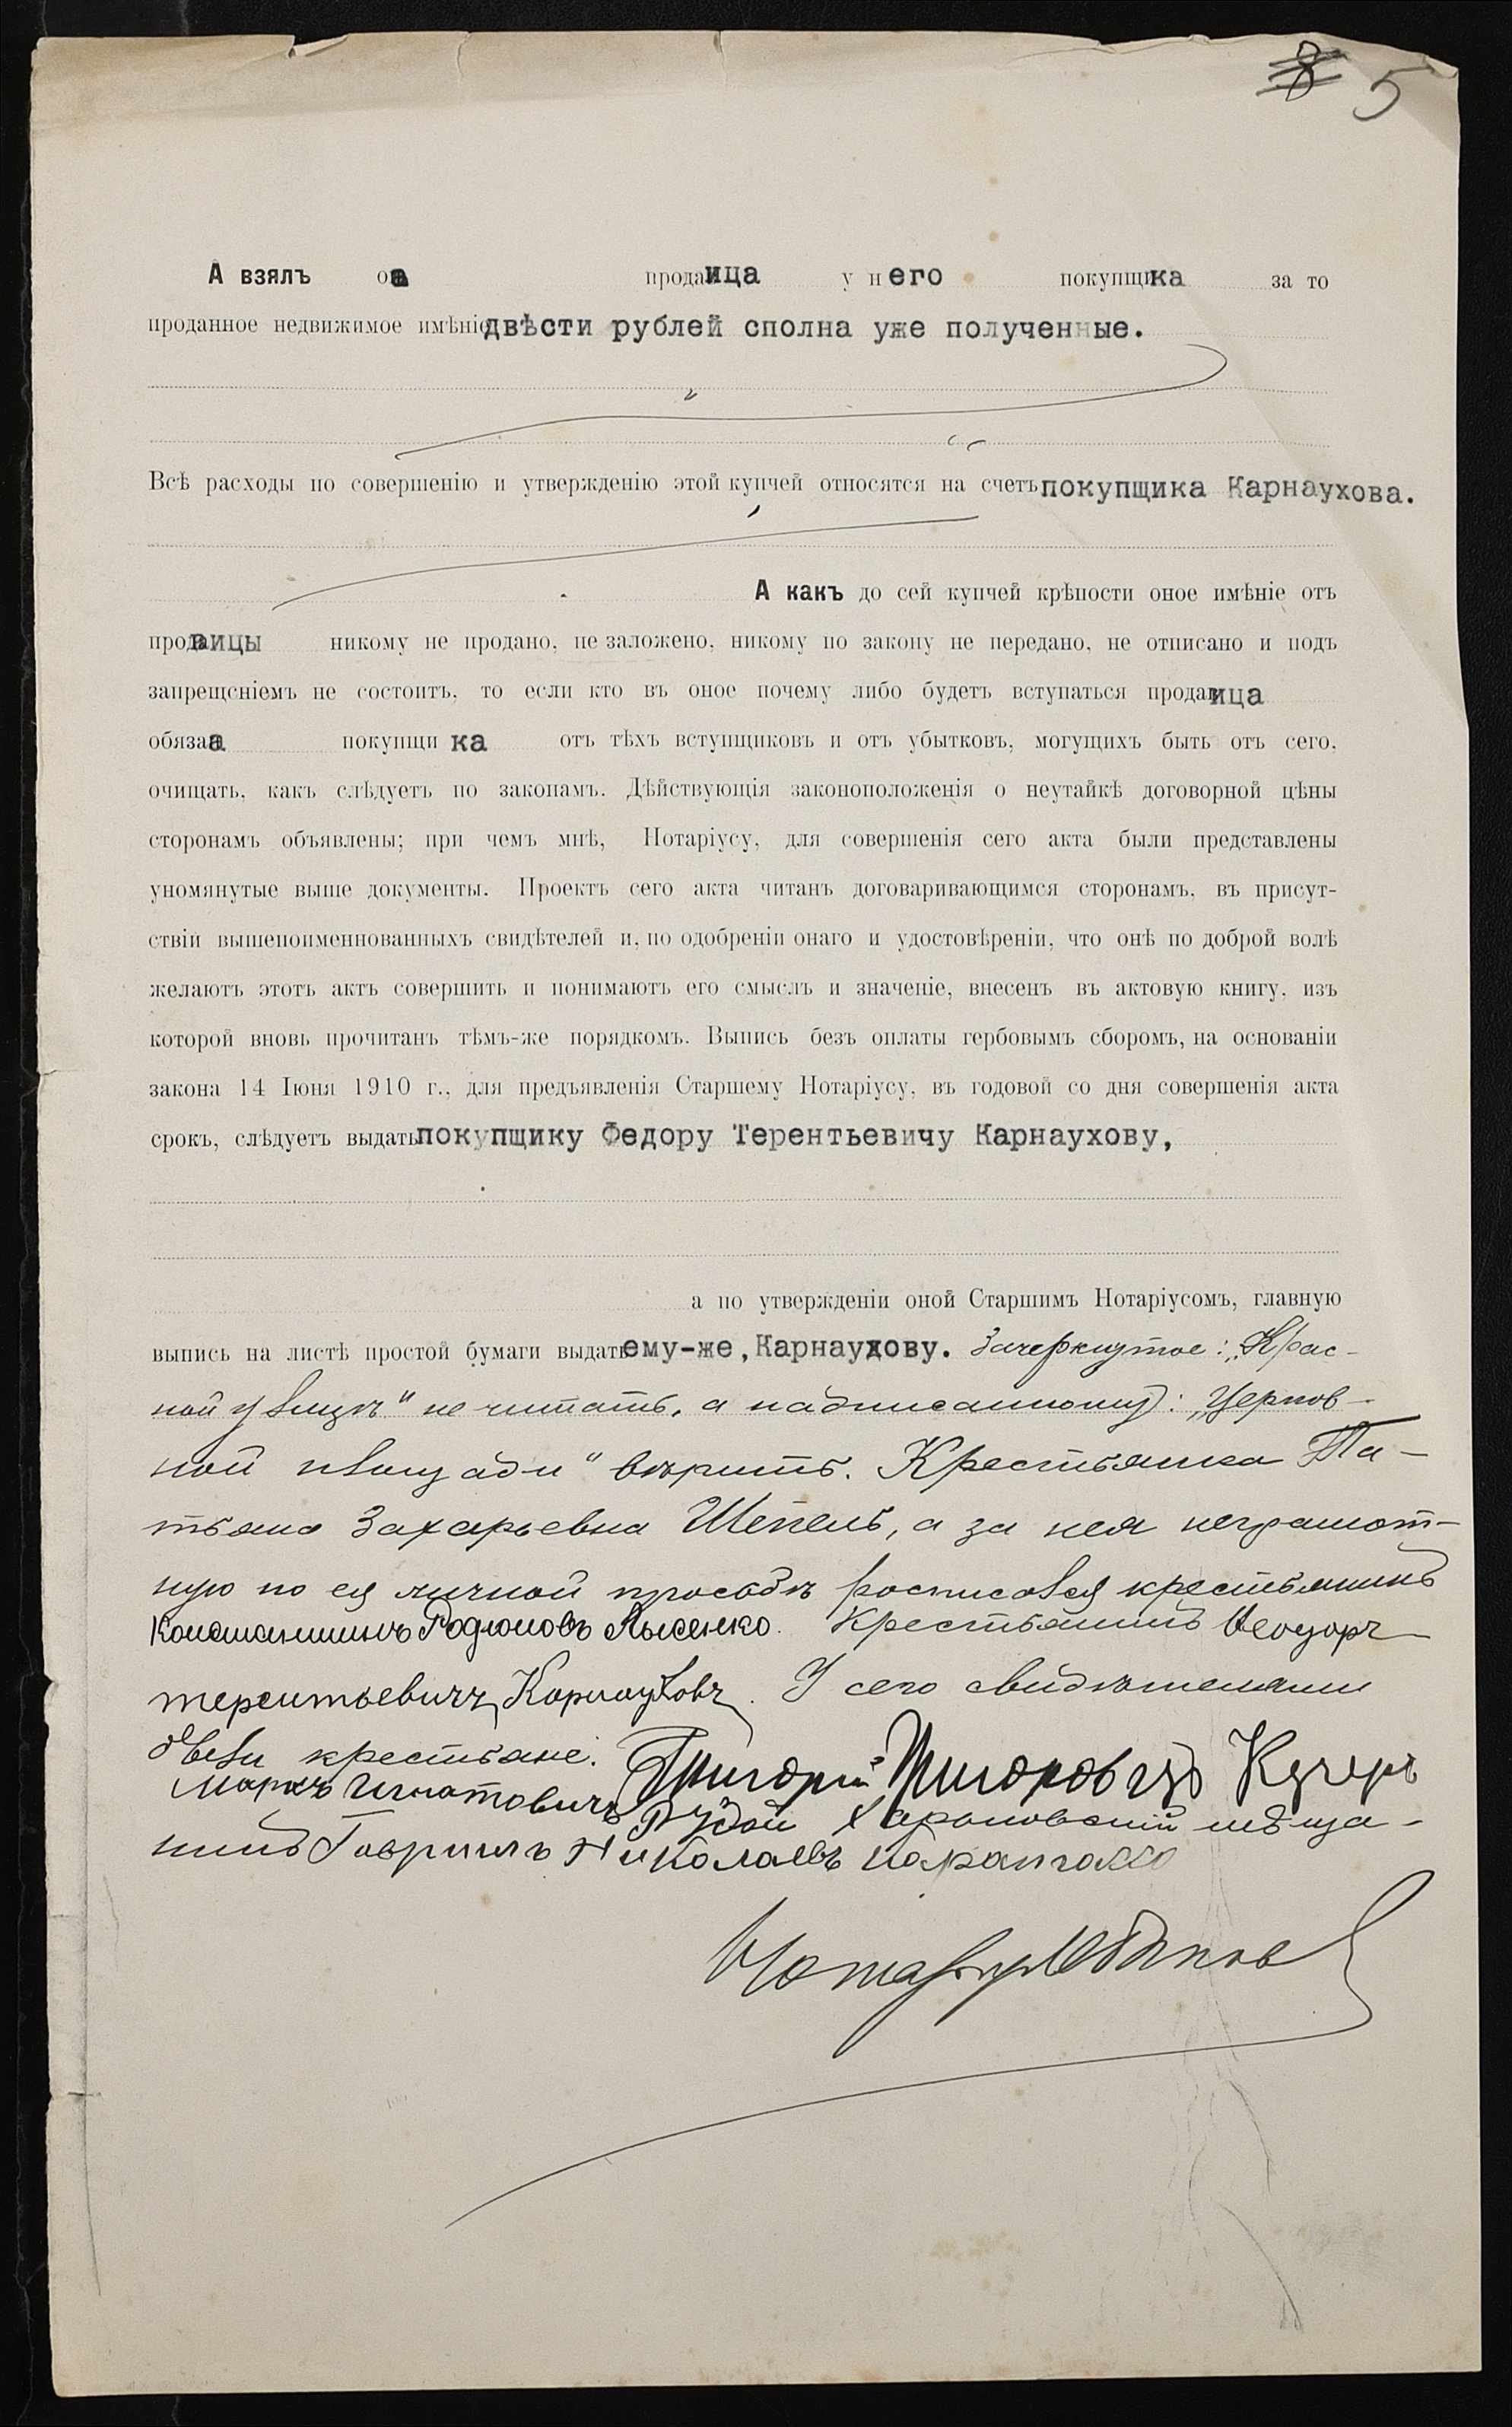 8 5
А взялъ она продавица у него покупщика за то
проданное недвижимое имѣніе двѣсти рублей сполна уже полученные.
Всѣ расходы по совершенію и утвержденію этой купчей относятся на счетъ покупщика Карнаухова.
А какъ до сей купчей крѣпости оное имѣніе отъ
продавицы никому не продано, не заложено, никому по закону не передано, не отписано и подъ
запрещеніемъ не состоитъ, то если кто въ оное почему либо будетъ вступаться продавица
обязана покупщика отъ тѣхъ вступщиковъ и отъ убытковъ, могущихъ быть отъ сего,
очищать, какъ слѣдуетъ по законамъ. Дѣйствующія законоположенія о неутайкѣ договорной цѣны
сторонамъ объявлены; при чемъ мнѣ, Нотаріусу, для совершенія сего акта были представлены
упомянутые выше документы. Проектъ сего акта читанъ договаривающимся сторонамъ, въ присут-
ствіи вышепоименнованныхъ свидѣтелей и, по одобреніи онаго и удостовѣреніи, что онѣ по доброй волѣ
желаютъ этотъ актъ совершить и понимаютъ его смыслъ и значеніе, внесенъ въ актовую книгу, изъ
которой вновь прочитанъ тѣмъ-же порядкомъ. Выпись безъ оплаты гербовымъ сборомъ, на основаніи
закона 14 Іюня 1910 г., для предъявленія Старшему Нотаріусу, въ годовой со дня совершенія акта
срокъ, слѣдуетъ выдать покупщику Федору Терентьевичу Карнаухову,
а по утвержденіи оной Старшимъ Нотаріусомъ, главную
выпись на листѣ простой бумаги выдать ему-же, Карнаухову. Зачеркнутое: „Крас-
ной улицѣ" не читать, а надписанному: „Церков-
ной площади" вѣрить. Крестьянка Та-
тьяна Захарьевна Шепель, а за нея неграмот-
ную по ея личной просьбѣ росписался крестьянинъ
Константинъ Родионовъ Лысенко. Крестьянинъ Феодоръ
терентьевичъ Карнауховъ. У сего свидѣтелями
были крестьяне: Григорій Григоровичъ Кучеръ
Маркъ Игнатовичъ Рудой Харьковскій мѣща-
нинъ Гавриилъ Николаевъ
Нотаріусъ